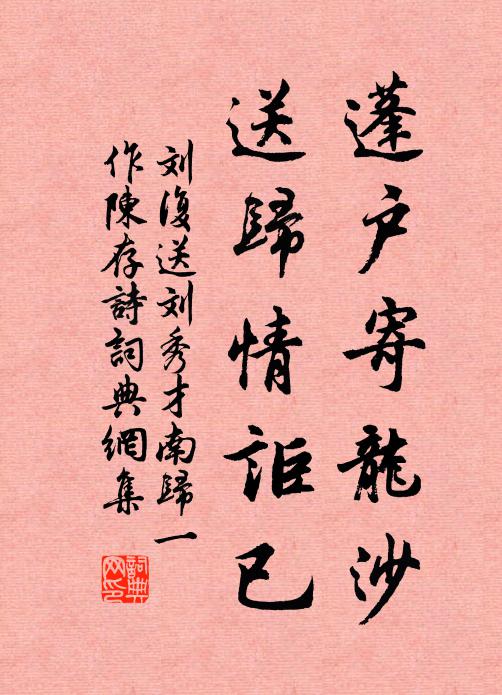 蓬户寄龍沙
送歸情詎已
刘復送刘秀才南歸一
作陳存詩詞典網集
詞典
网印